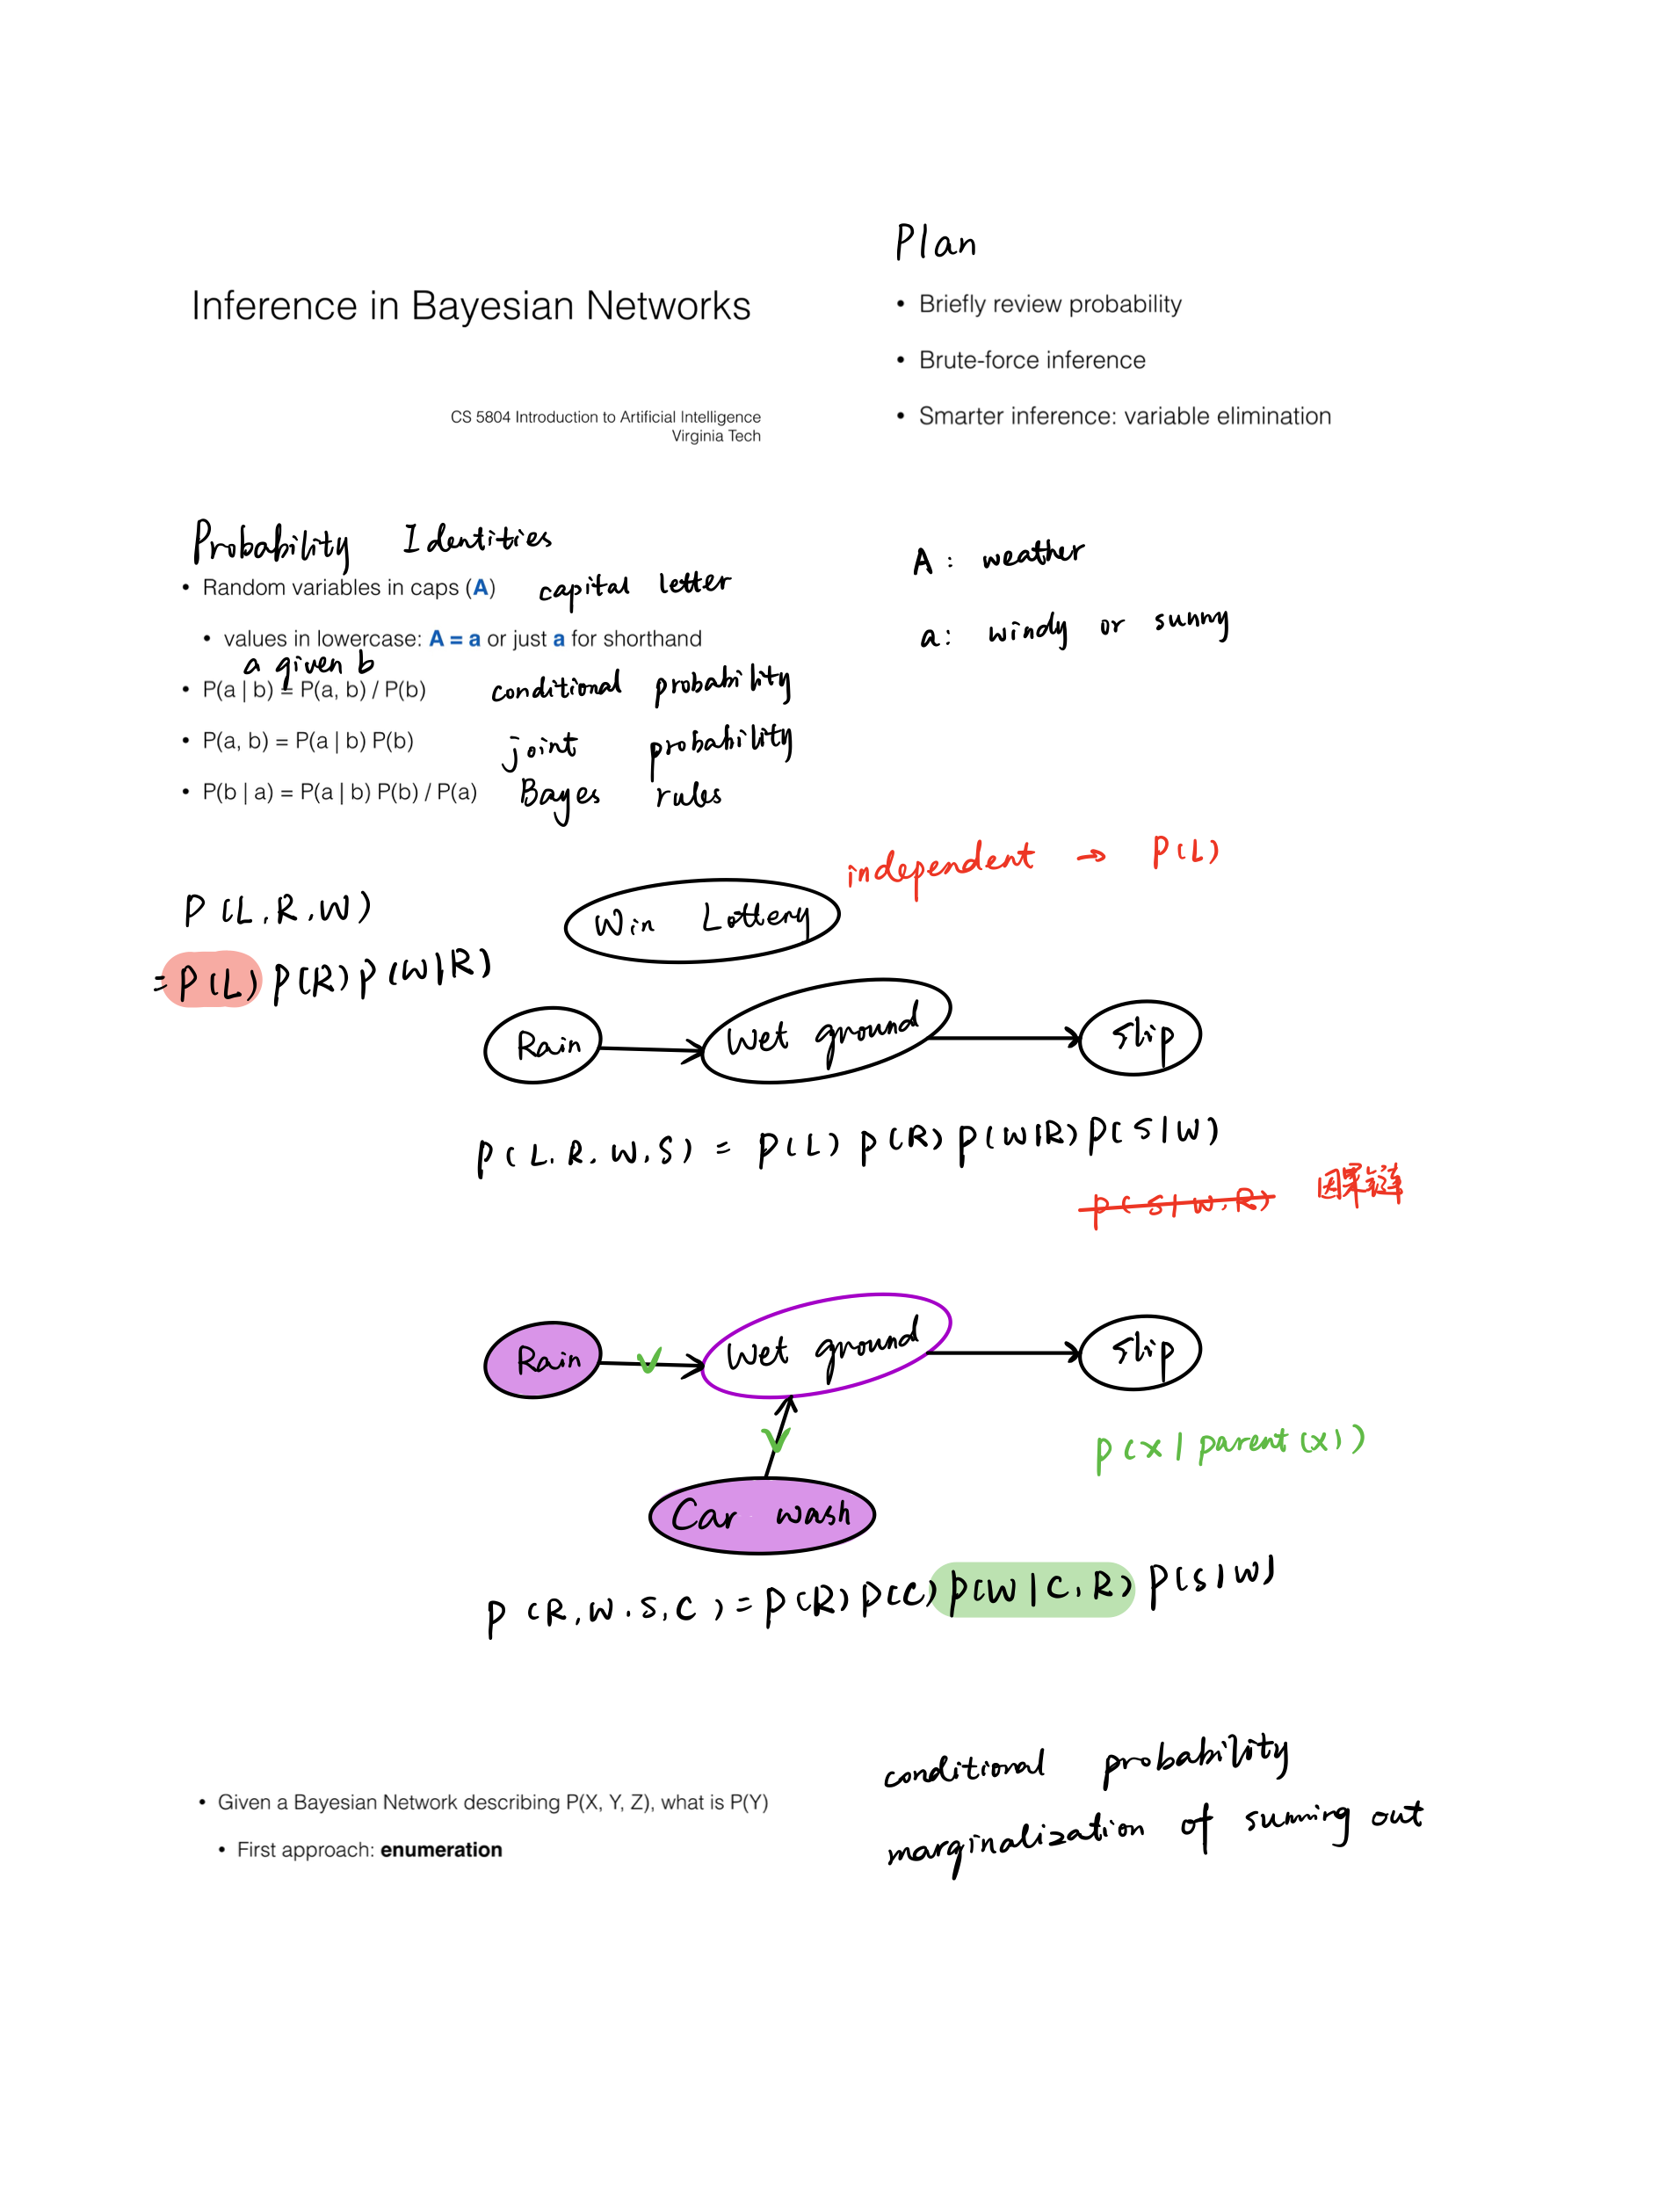 Inference in Bayesian Networks
CS 5804 Introduction to Artificial Intelligence
Virginia Tech
Plan
• Briefly review probability
• Brute-force inference
• Smarter inference: variable elimination
Probability Identities
• Random variables in caps (A) capital letter
• values in lowercase: A = a or just a for shorthand
a given b
• P(a | b) = P(a, b) / P(b) conditional probability
• P(a, b) = P(a | b) P(b) joint probability
• P(b | a) = P(a | b) P(b) / P(a) Bayes rules
A: weather
a: windy or sunny
independent → P(L)
P(L.R.W)
=P(L)P(R)P(W|R)
Win Lottery
Rain
Wet ground
Slip
P(L.R.W.S) = P(L)P(R)P(W|R)P(S|W)
P(S|W.R) 因果链
Rain
Wet ground
Slip
Car wash
P(X|parent(X))
P(R,W.S,C)=P(R)P(C)P(W|C,R)P(S|W)
• Given a Bayesian Network describing P(X, Y, Z), what is P(Y)
• First approach: enumeration
conditional probability
marginalization of suming out